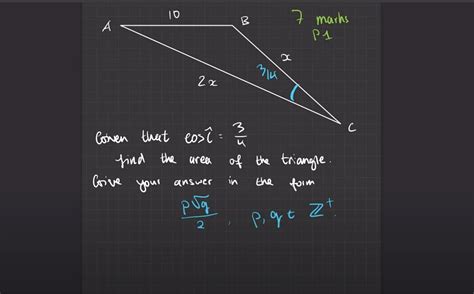 10
7 marks
P1
A
B
x
3/4
2x
C
Given that cosĈ = 3/4
find the area of the triangle.
Give your answer in the form
p√q/2 , p, q ∈ ℤ⁺.